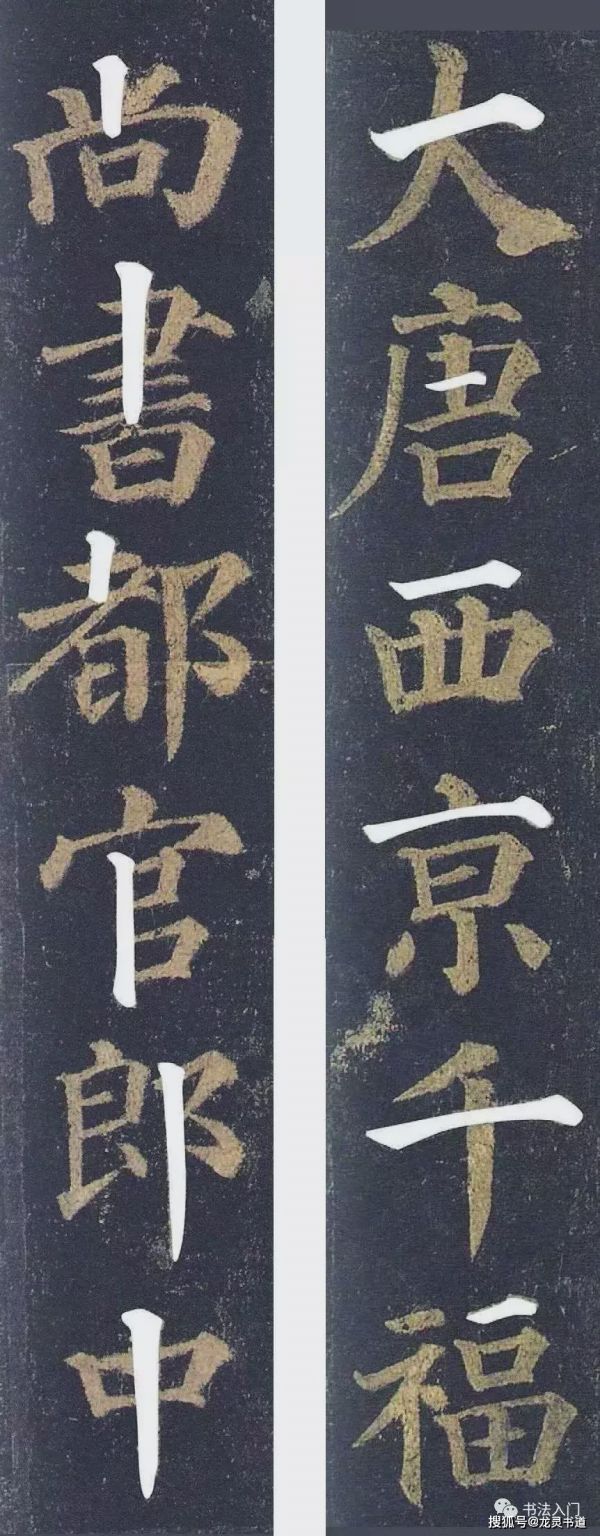 大唐西京千福
尚書都官郎中
书法入门
搜狐号@龙灵书道